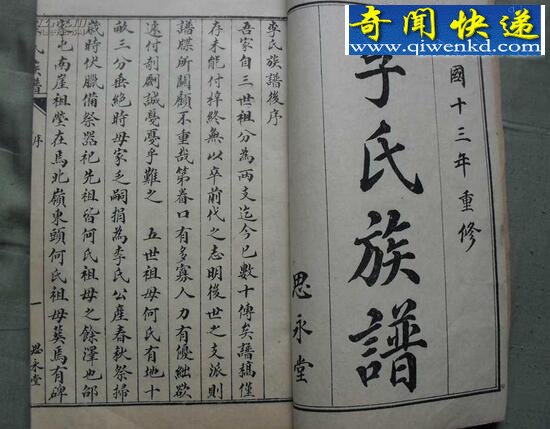 奇闻快递
www.qiwenkd.com
國十三年重修
李氏族譜
思永堂
李氏族譜後序
吾家自三世祖分為兩支迄今已數十傳矣譜稿僅
存未能付梓終無以卒前代之志明後世之支派則
譜牒所關顧不重哉第眷口有多寡人力有優絀欲
速付剞劂誠戛戛乎難之 五世祖母何氏有地十
畝三分垂絕時母家乏嗣捐為李氏公產春秋祭掃
歲時伏臘備祭器祀先祖皆何氏祖母之餘澤也邰
家屯南崖祖塋在馬北嶺東頭何氏祖母葬焉有碑
氏族譜
序
一
思永堂